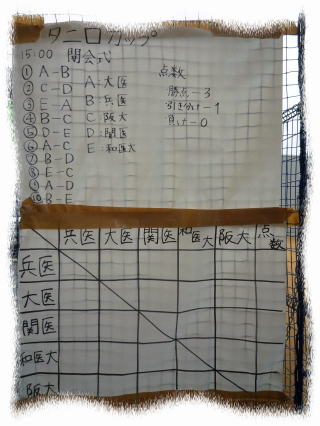 タニロカップ
15:00 開会式
① A-B
② C-D
③ E-A
④ B-C
⑤ D-E
⑥ A-C
⑦ B-D
⑧ E-C
⑨ A-D
⑩ B-E
A:大医
B:兵医
C:阪大
D:関医
E:和医大
点数
勝点-3
引き分け-1
負け-0
兵医 大医 関医 和医大 阪大 点数
兵医
大医
関医
和医大
阪大